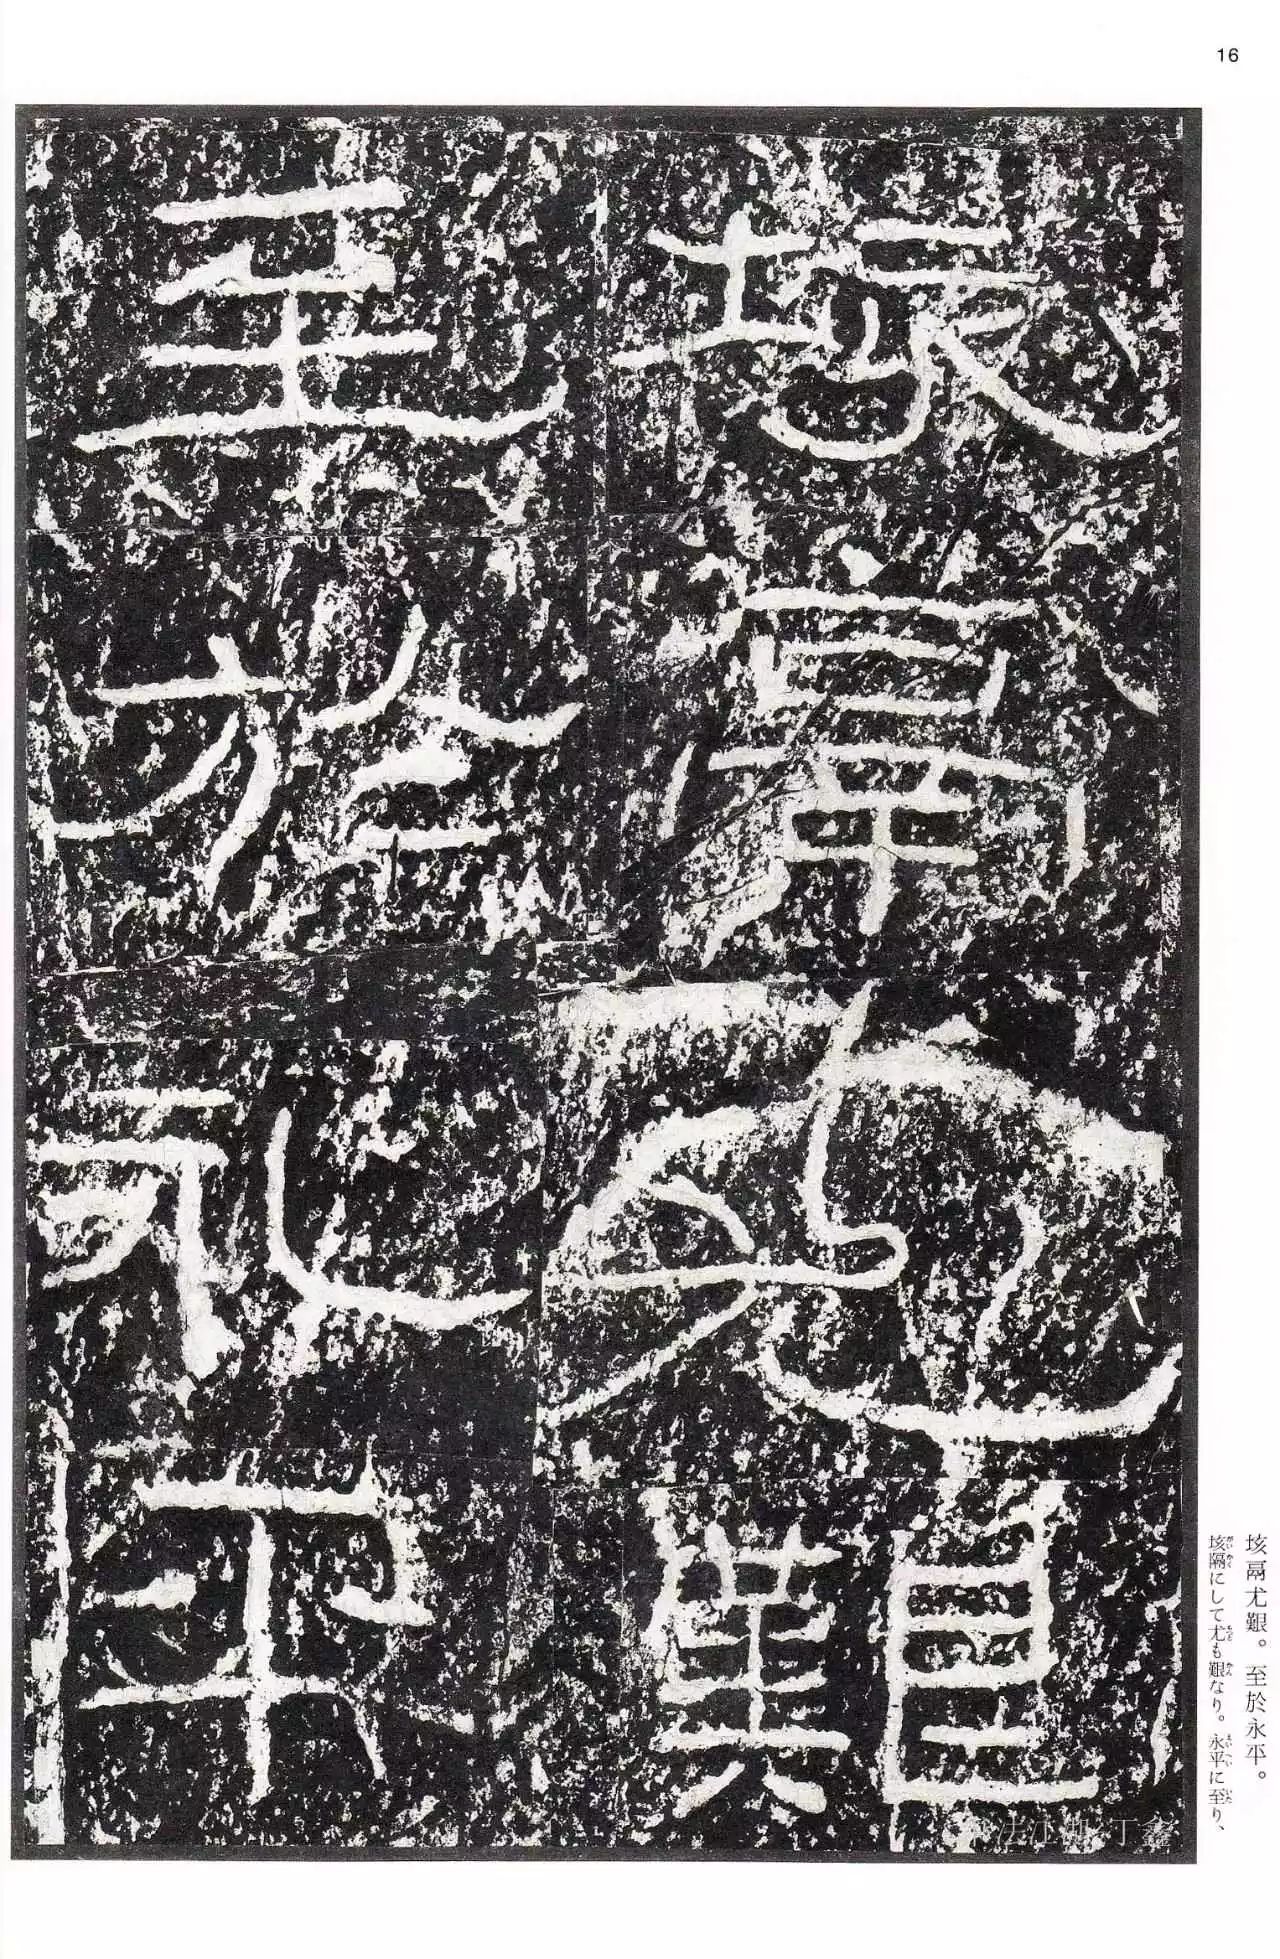 16
垓鬲尤艱
至於永平
垓鬲尤艱。至於永平。
垓隔にして尤も艱なり。永平に至り、
法江湖·丁鑫